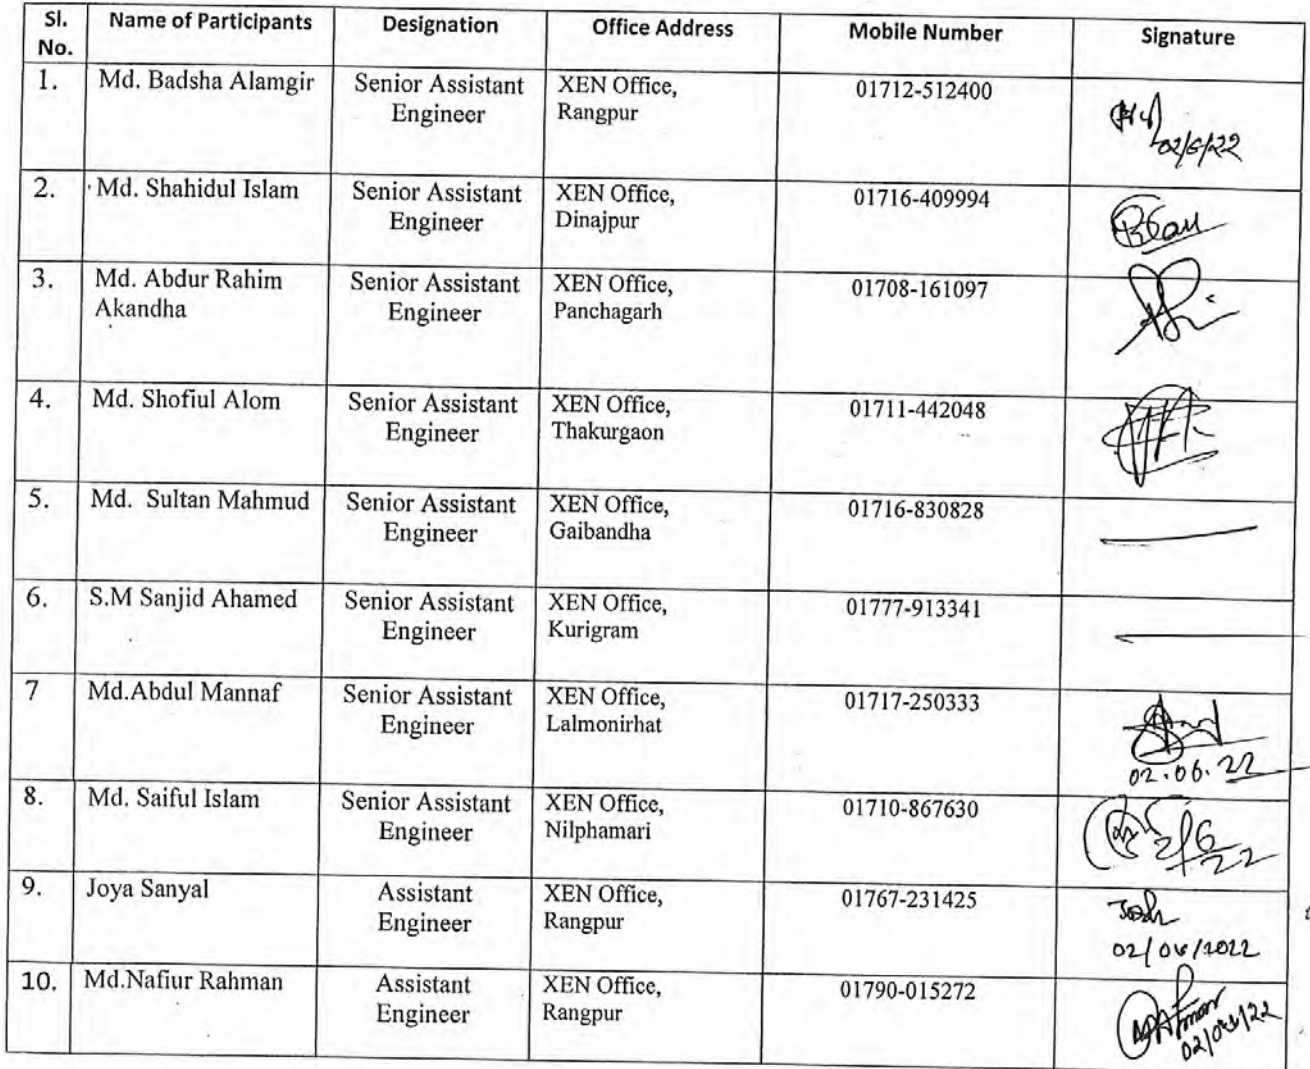 Sl. No. Name of Participants Designation Office Address Mobile Number Signature
1. Md. Badsha Alamgir Senior Assistant Engineer XEN Office, Rangpur 01712-512400 02/6/22
2. Md. Shahidul Islam Senior Assistant Engineer XEN Office, Dinajpur 01716-409994
3. Md. Abdur Rahim Akandha Senior Assistant Engineer XEN Office, Panchagarh 01708-161097
4. Md. Shofiul Alom Senior Assistant Engineer XEN Office, Thakurgaon 01711-442048
5. Md. Sultan Mahmud Senior Assistant Engineer XEN Office, Gaibandha 01716-830828
6. S.M Sanjid Ahamed Senior Assistant Engineer XEN Office, Kurigram 01777-913341
7 Md.Abdul Mannaf Senior Assistant Engineer XEN Office, Lalmonirhat 01717-250333 02.06.22
8. Md. Saiful Islam Senior Assistant Engineer XEN Office, Nilphamari 01710-867630 2/6/22
9. Joya Sanyal Assistant Engineer XEN Office, Rangpur 01767-231425 02/06/2022
10. Md.Nafiur Rahman Assistant Engineer XEN Office, Rangpur 01790-015272